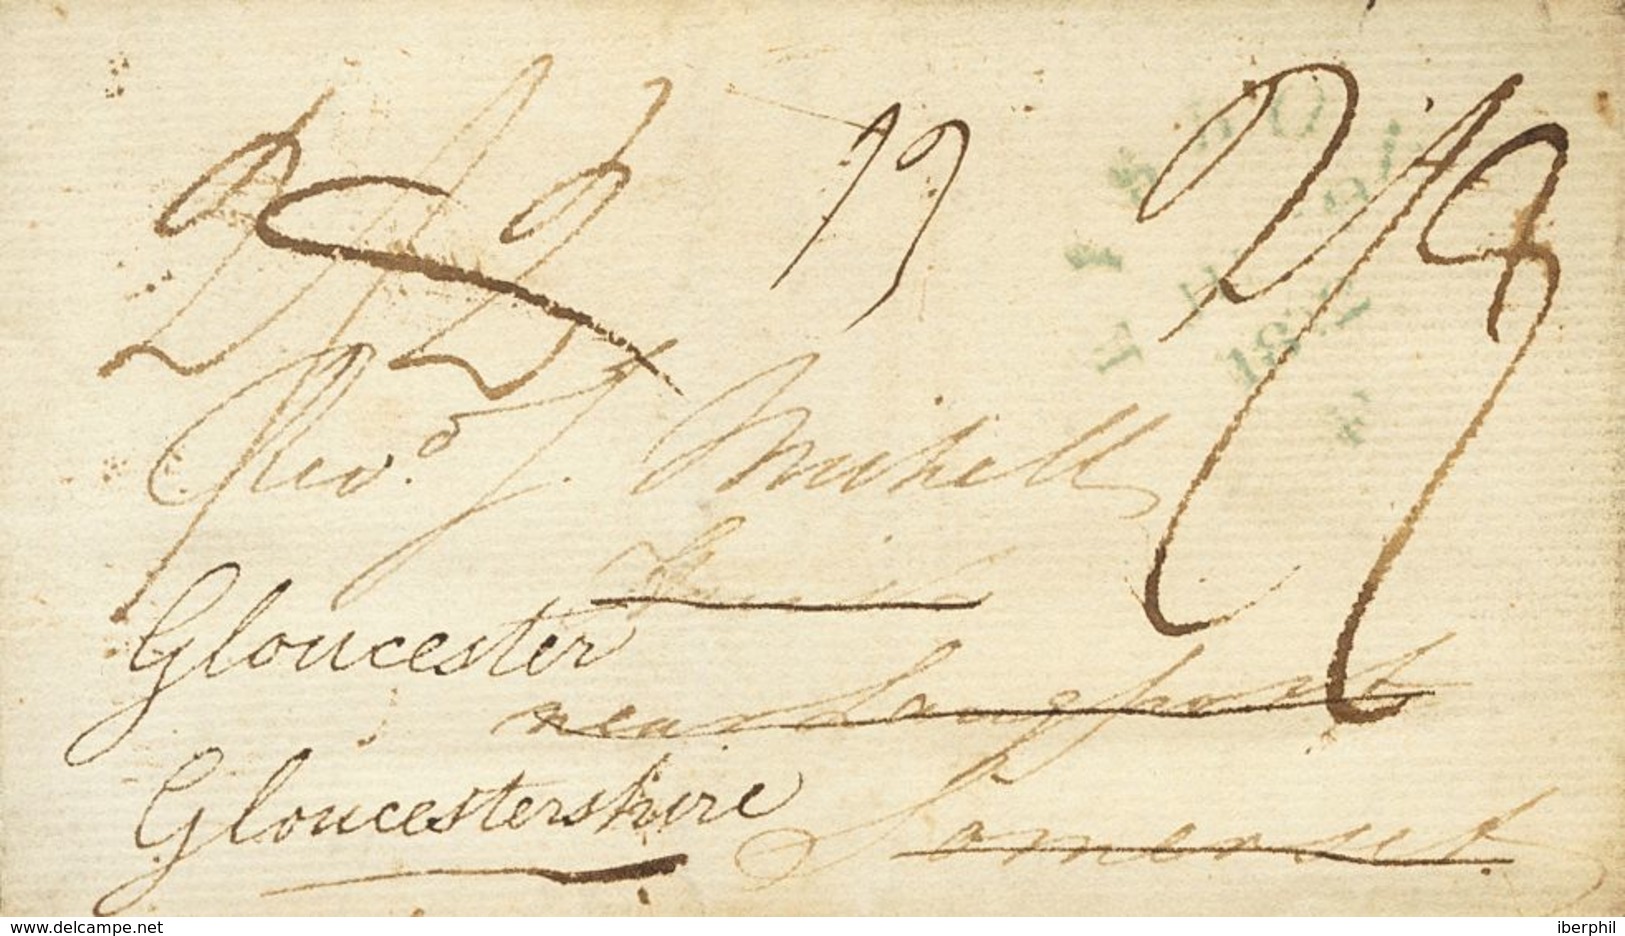 2/2
13
2/9
Revd. J. Michell
Gloucester
near Langport
Gloucestershire
Somerset
www.delcampe.net
iberphil